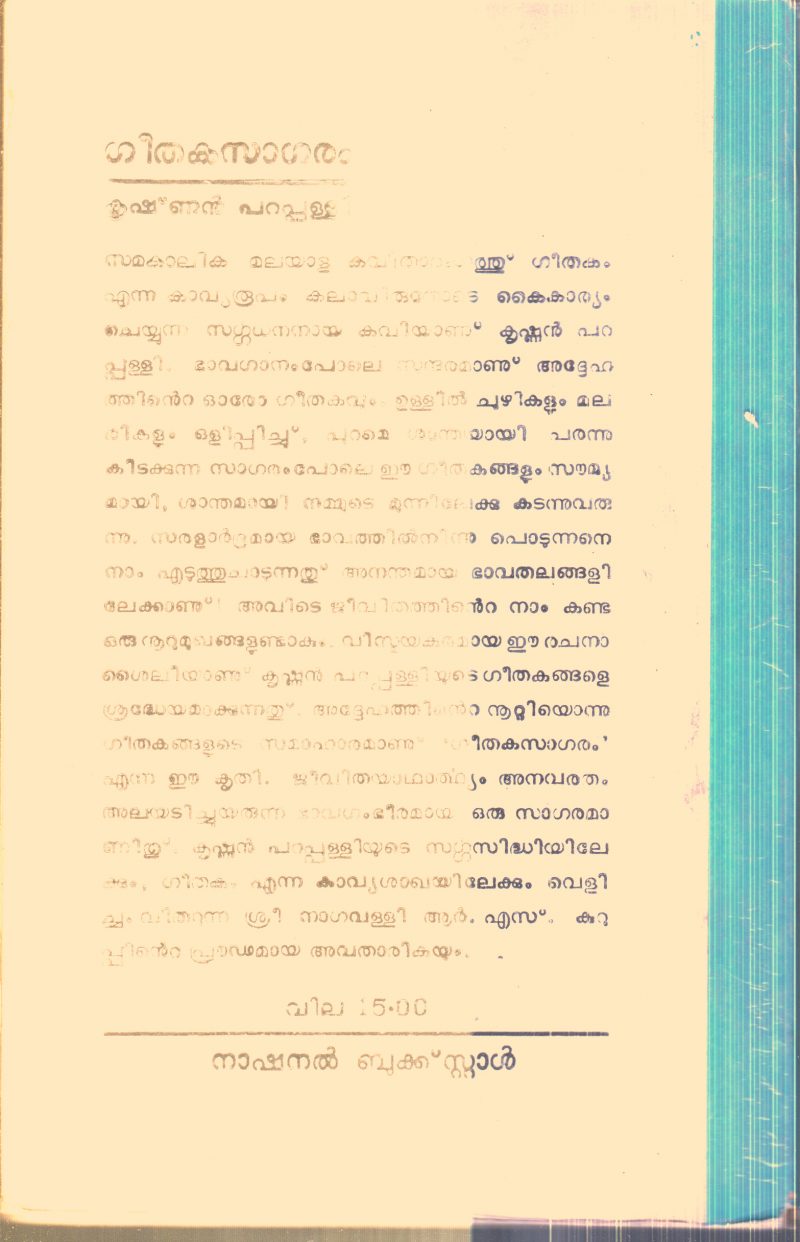 ഗീതകസാഗരം
കൃഷ്ണൻ പറപ്പള്ളി
സമകാലിക മലയാള കവിതാരംഗത്തു് ഗീതകം
എന്ന കാവ്യരൂപം കലാവിരുതോടെ കൈകാര്യം
ചെയ്യുന്ന സർഗ്ഗധനനായ കവിയാണു് കൃഷ്ണൻ പറ
പ്പള്ളി. ഭാവഗാനംപോലെ സുന്ദരമാണു് അദ്ദേഹ
ത്തിൻെറ ഓരോ ഗീതകവും. ഉള്ളിൽ ചുഴികളും മല
രികളും ഒളിപ്പിച്ചു്, പുറമെ ശാന്തമായി പരന്നു
കിടക്കുന്ന സാഗരംപോലെ ഈ ഗീതകങ്ങളും സൗമ്യ
മായി, ശാന്തമായി നമ്മുടെ മുന്നിലേക്കു കടന്നുവരു
ന്നു. സരളാർദ്രമായ ഭാവത്തിൽനിന്നു പൊടുന്നനെ
നാം എടുത്തുചാടുന്നതു് അനന്തമായ ഭാവതലങ്ങളി
ലേക്കാണു്! അവിടെ ജീവിതത്തിൻെറ നാം കണ്ട
ഒരു നൂറുമുഖങ്ങളുണ്ടാകും. വിസ്മയകരമായ ഈ രചനാ
ശൈലിയാണു് കൃഷ്ണൻ പറപ്പള്ളിയുടെ ഗീതകങ്ങളെ
ശ്രദ്ധേയമാക്കുന്നതു്. അദ്ദേഹത്തിൻെറ നൂറ്റിയൊന്നു
ഗീതകങ്ങളുടെ സമാഹാരമാണു് 'ഗീതകസാഗരം'
എന്ന ഈ കൃതി. ജീവിതയാഥാർത്ഥ്യം അനവരതം
അലയടിച്ചുയരുന്ന ഭാവഗംഭീരമായ ഒരു സാഗരമാ
ണിതു്. കൃഷ്ണൻ പറപ്പള്ളിയുടെ സർഗ്ഗസിദ്ധിയിലേ
ക്കും, ഗീതകം എന്ന കാവ്യശാഖയിലേക്കും വെളി
ച്ചം വിതറുന്ന ശ്രീ നാഗവള്ളി ആർ. എസ്. കുറു
പ്പിൻെറ പ്രൗഢമായ അവതാരികയും.
വില 15·00
നാഷനൽ ബുക്ക്സ്റ്റാൾ